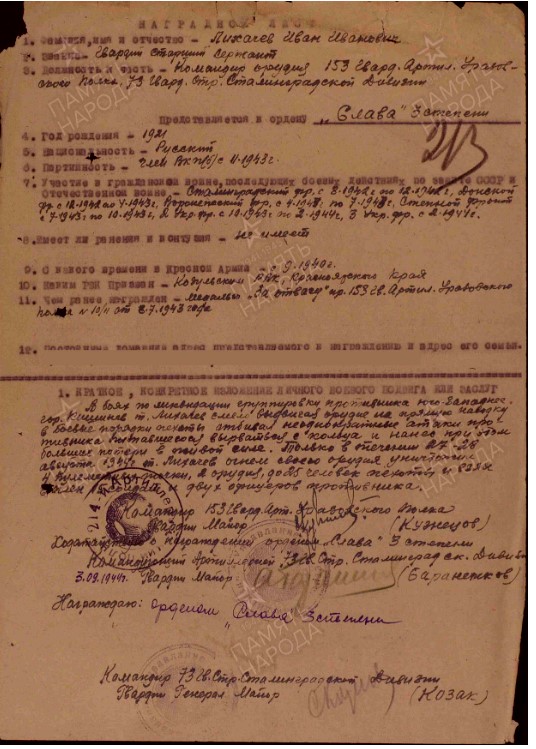 НАГРАДНОЙ ЛИСТ
1. Фамилия, имя и отчество - Лихачев Иван Иванович
2. Звание - Гвардии Старший Сержант
3. Должность и часть - Командир орудия 153 Гвард. Артил.
Полка, 73 Гвард. Стр. Сталинградской Дивизии
Представляется к ордену „Слава" 3 степени
4. Год рождения - 1921
5. Национальность - Русский
6. Партийность - член ВКП(б) с 1943г.
7. Участие в гражданской войне, последующих боевых действиях по защите СССР и
Отечественной войне - Сталинградский фр. с 8.1942г по 12.1942г, Донской
фр. с 12.1942 по 4.1943г, Воронежский фр. с 4.1943г. по 7.1943г, Степной фронт
с 7.1943г. по 10.1943г, 2 Укр. фр. с 10.1943г. по 2.1944г, 3 Укр. фр. с 2.1944г.
8. Имеет ли ранения и контузии - не имеет
9. С какого времени в Красной Армии - с 9.1940г.
10. Каким РВК призван - РВК, Красноярского Края
11. Чем ранее награжден - медалью „За отвагу" пр. 153 Гв. Артил.
Полка № 10/н от 8.7.1943 года
12. Постоянный домашний адрес представляемого к награждению и адрес его семьи.
1. КРАТКОЕ, КОНКРЕТНОЕ ИЗЛОЖЕНИЕ ЛИЧНОГО БОЕВОГО ПОДВИГА ИЛИ ЗАСЛУГ
В боях по ликвидации группировки противника юго-западнее
гор. Кишинев т. Лихачев смело выдвигал орудие на прямую наводку
в боевые порядки пехоты отбивал неоднократные атаки про-
тивника пытавшегося вырваться с кольца и нанес при этом
большие потери в живой силе. Только в течении 27-28
августа 1944г. т. Лихачев огнем своего орудия уничтожил
4 пулеметных точки, 2 орудия, до 25 человек пехоты и взял
в плен двух офицеров противника.
Командир 153 Гвард. Арт. Полка
Гвардии Майор (Кузнецов)
Ходатайствую о награждении орденом „Слава" 3 степени
Командующий Артиллерией 73 Гв. Стр. Сталинградск. Дивизии
3.09.1944г. Гвардии Майор
Награждаю: орденом „Слава" 3 степени
Командир 73 Гв. Стр. Сталинградской Дивизии
Гвардии Генерал Майор (Козак)
ПАМЯТЬ НАРОДА